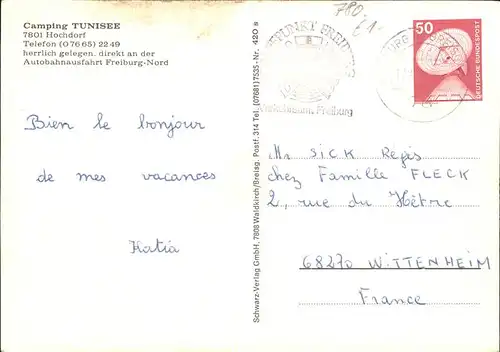 Camping TUNISEE
7801 Hochdorf
Telefon (07665) 2249
herrlich gelegen, direkt an der
Autobahnausfahrt Freiburg-Nord
Bien le bonjour
de mes vacances
Katia
Schwarz-Verlag GmbH, 7808 Waldkirch/Breisg. Postf. 314 Tel. (07681) 7535 - Nr. 420 s
780.
Freiburg
50
DEUTSCHE BUNDESPOST
Mr SICK Régis
chez Famille FLECK
2, rue du Hêtre
68270 WITTENHEIM
France